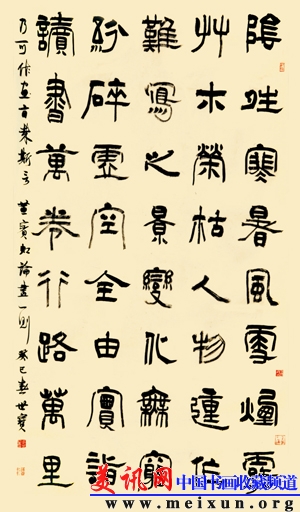 陰晴寒暑風雪煙雲
艸木榮枯人物作
難寫之景變化無窮
紛碎虛空全由實詣
讀書萬卷行路萬里
乃可作畫旨哉斯言 黃賓虹論畫一則 癸巳春世寶
美讯网 中国书画收藏频道
www.meixun.org